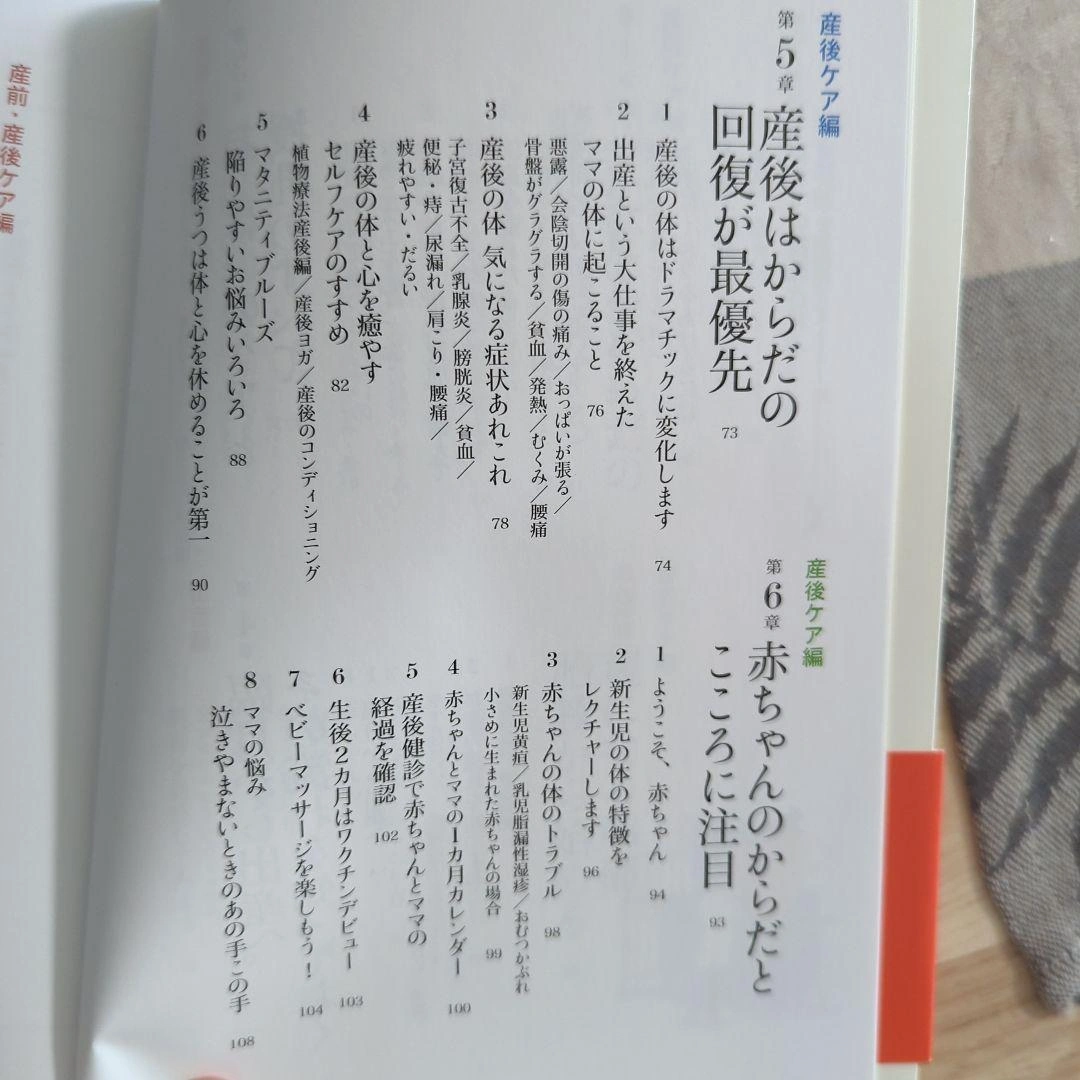 産後ケア編
第5章 産後はからだの
回復が最優先 73
1 産後の体はドラマチックに変化します 74
2 出産という大仕事を終えた
ママの体に起こること 76
悪露／会陰切開の傷の痛み／おっぱいが張る／
骨盤がグラグラする／貧血／発熱／むくみ／腰痛
3 産後の体 気になる症状あれこれ 78
子宮復古不全／乳腺炎／膀胱炎／貧血／
便秘・痔／尿漏れ／肩こり・腰痛／
疲れやすい・だるい
4 産後の体と心を癒やす
セルフケアのすすめ 82
植物療法産後編／産後ヨガ／産後のコンディショニング
5 マタニティブルーズ
陥りやすいお悩みいろいろ 88
6 産後うつは体と心を休めることが第一 90
産後ケア編
第6章 赤ちゃんのからだと
こころに注目 93
1 ようこそ、赤ちゃん 94
2 新生児の体の特徴を
レクチャーします 96
3 赤ちゃんの体のトラブル 98
新生児黄疸／乳児脂漏性湿疹／おむつかぶれ
小さめに生まれた赤ちゃんの場合 99
4 赤ちゃんとママの1カ月カレンダー 100
5 産後健診で赤ちゃんとママの
経過を確認 102
6 生後2カ月はワクチンデビュー 103
7 ベビーマッサージを楽しもう！ 104
8 ママの悩み
泣きやまないときのあの手この手 108
産前・産後ケア編